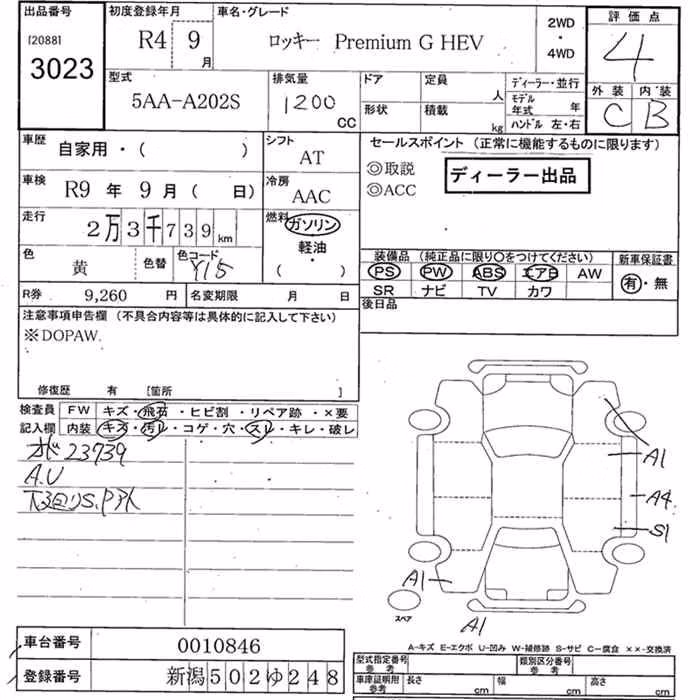 出品番号
[2088]
3023
初度登録年月
R4 9 月
車名・グレード
ロッキー Premium G HEV
2WD
・
4WD
評価点
4
外装 内装
C B
型式
5AA-A202S
排気量
1200 CC
ドア
定員 人
形状
積載 kg
ディーラー・並行
モデル年式 年
ハンドル 左・右
車歴
自家用・( )
シフト
AT
車検
R9 年 9 月 ( 日)
冷房
AAC
走行
2万3千739 km
燃料
ガソリン
軽油
・
( )
色
黄
色替
色コード
Y15
R券 9,260 円
名変期限 月 日
セールスポイント (正常に機能するものに限ります)
◎取説
◎ACC
ディーラー出品
装備品 (純正品に限り○をつけてください)
PS PW ABS エアB AW
SR ナビ TV カワ
新車保証書
有・無
後日品
注意事項申告欄 (不具合内容等は具体的に記入して下さい)
※DOPAW.
修復歴 有 [箇所 ]
検査員記入欄
FW キズ・飛石・ヒビ割・リペア跡・×要
内装 キズ・汚レ・コゲ・穴・スレ・キレ・破レ
23739
A.U
下回りS.
A1
A4
S1
A1
A1
スペア
車台番号 0010846
登録番号 新潟502ゆ248
A-キズ E-エクボ U-凹み W-補修跡 S-サビ C-腐食 ××-交換済
型式指定番号 参考
類別区分番号 参考
車庫証明用 参考
長さ cm
幅 cm
高さ cm